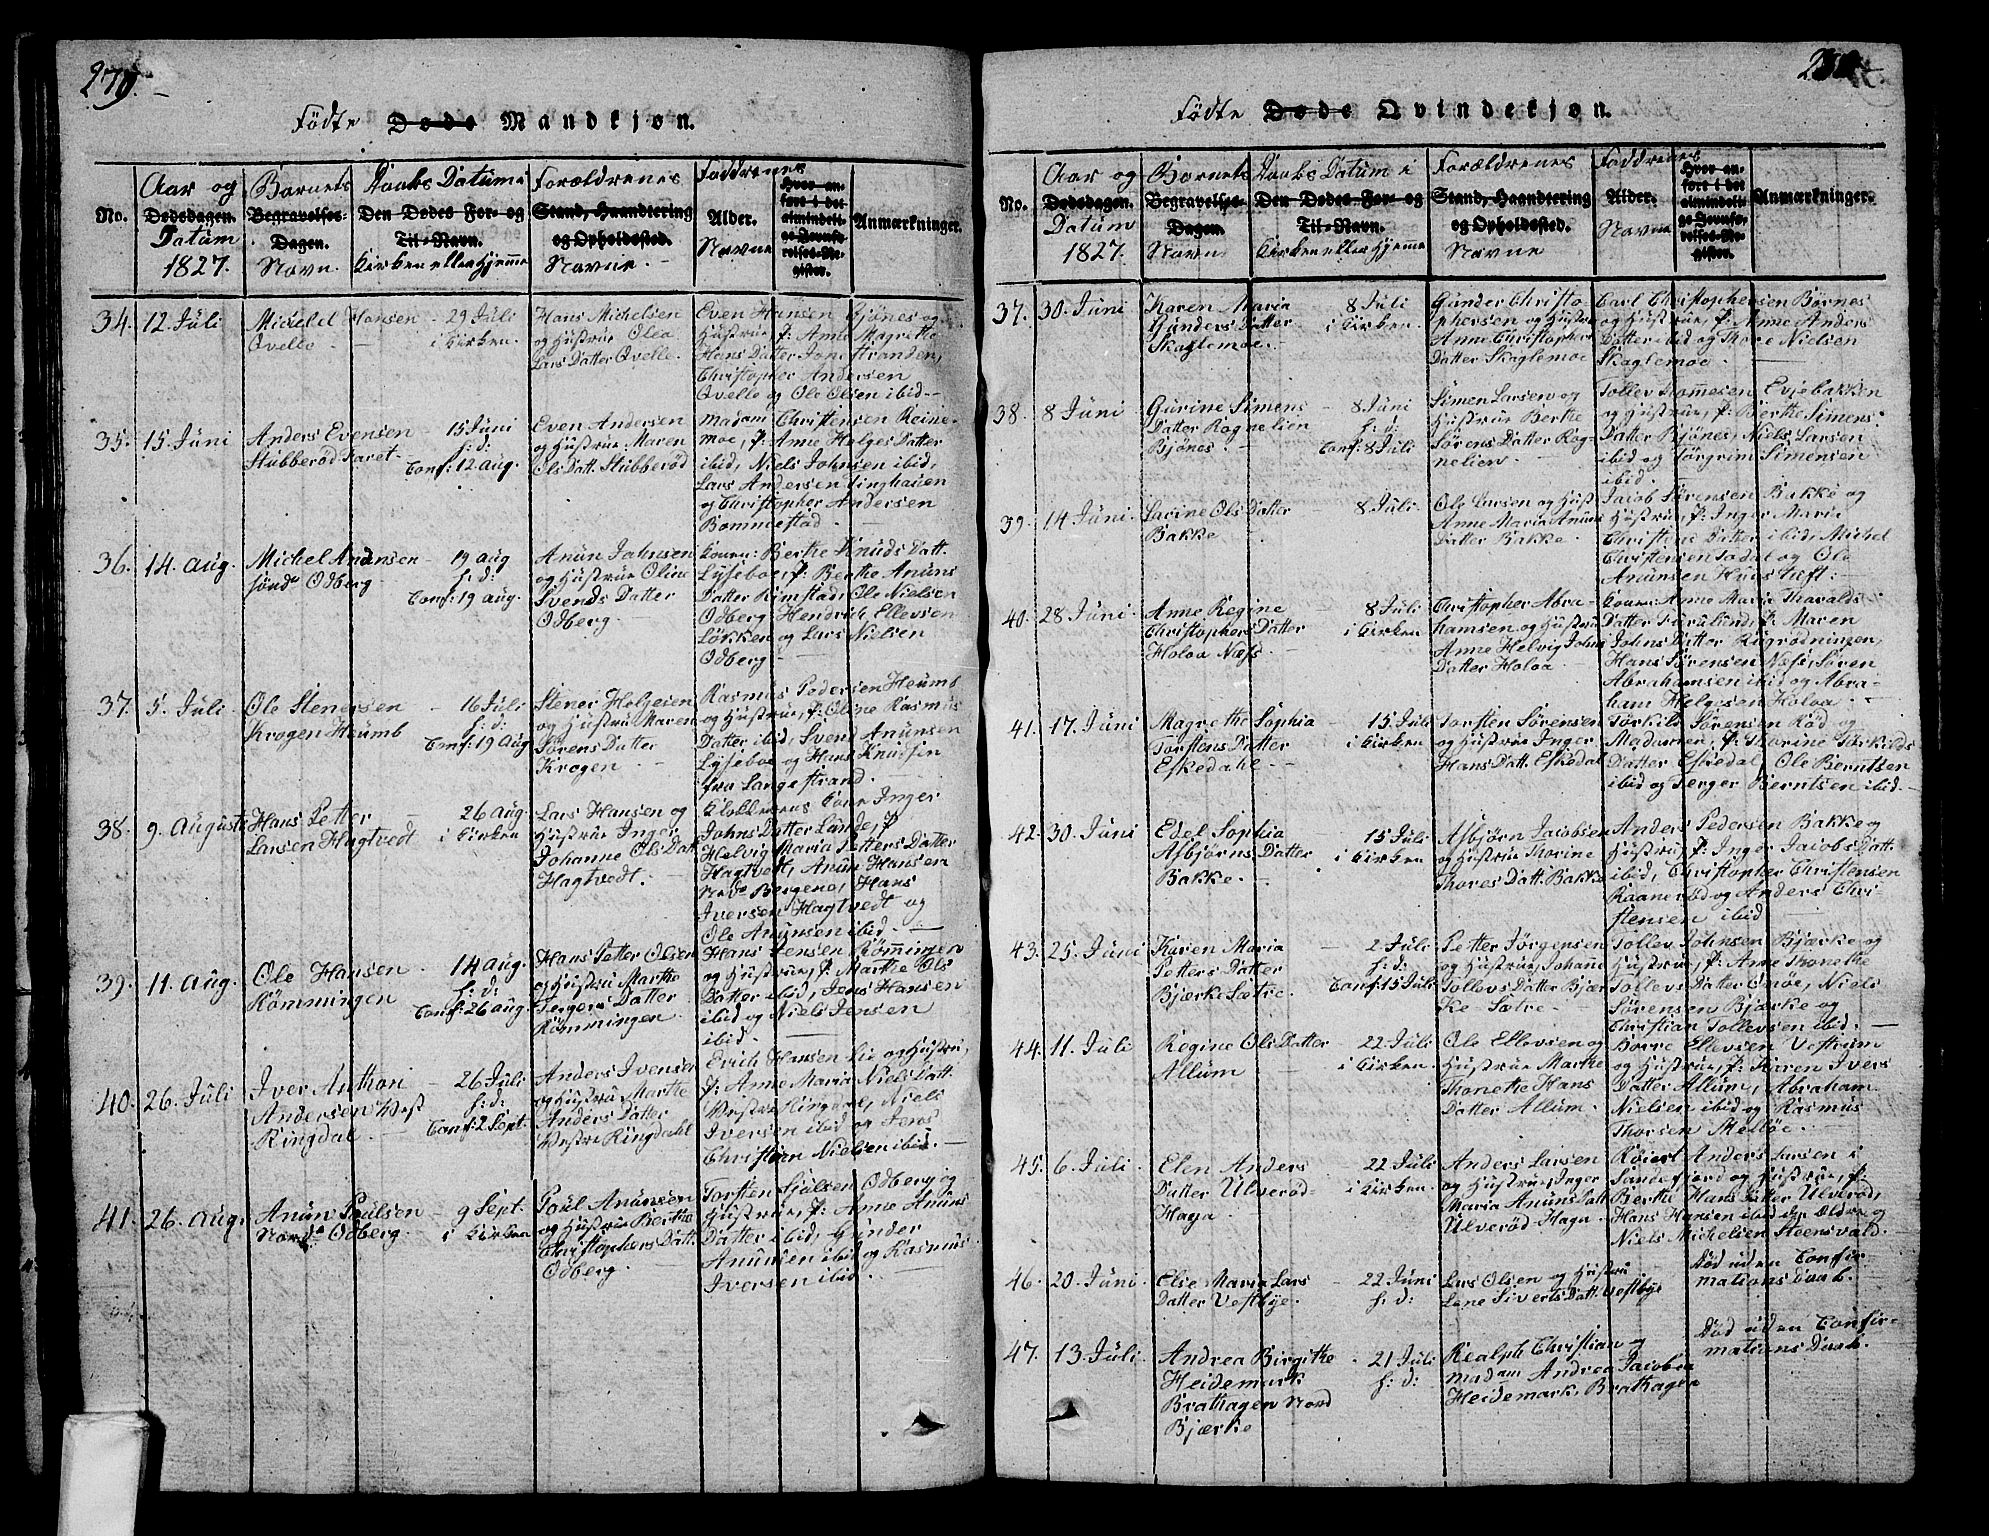 279.
Fødte Døde Mandkjøn.
No.
Aar og
Dødsdagen.
Datum
1827.
Barnets
Begravelses-
Dagen.
Navn.
Daabs Datum i
Den Dødes For- og
Til-Navn.
Kirken eller Hjemme
Forældrenes
Stand, Haandtering
og Opholdssted.
Navne
Faddrenes
Alder.
Navne
Hvor an-
ført i det
almindeli-
ge Jevnfø-
relses-Re-
gister.
Anmærkninger.
34. 12 Juli
Micheld Hansen
Ovelle
29 Juli
i Kirken.
Hans Michelsen
og Hustrue Olea
Lars Datter Ovelle.
Even Hansen Gjønes og
Hustrue, p: Anne Magrethe
Hans Datter Jonstranden,
Christopher Andersen
Ovelle og Ole Olsen ibid.
35. 15 Juni
Anders Evensen
Stubberød Faret
15 Juni
h: d:
Conf: 12 aug.
Even Andersen
og Hustrue Maren
Ols Datt. Stubberød
Madam Christensen Reine-
moe, p: Anne Helges Datter
ibid, Niels Johnsen ibid,
Lars Andersen Linghauen
og Christopher Andersen
Bommestad.
36. 14 aug.
Michel Anunsen
søndr Odberg
19 aug
h: d:
Conf: 19 aug.
Anun Johnsen
og Hustrue Oline
Svends Datter
Odberg.
Konen: Berthe Knuds Datt.
Lyseboe, p: Berthe Anuns
Datter Rimstad, Ole Nielsen
Odberg, Hendrich Ellevsen
Løkken og Lars Nielsen
Odberg
37. 5. Juli
Ole Stenersen
Krogen Heumb
16 Juli
h: d:
Conf: 19 Aug
Stener Helgesen
og Hustrue Maren
Sørens Datter
Krogen
Rasmus Pedersen Heumb
og Hustrue, p: Oline Rasmus
Datter ibid, Svend Anunsen
Lyseboe og Hans Knudsen
fra Langestrand.
38. 9. Augusti
Hans Petter
Larsen Hagtvedt
26 Aug
i Kirken
Lars Hansen og
Hustrue Inger
Johanne Ols Datt.
Hagtvedt.
Klokkerens Kone Inger
Johns Datter Lunde, p
Helvig Maria Petters Datter
Hagtvedt, Anun Hansen
Nordr Bergene, Hans
Iversen Hagtvedt og
Ole Anunsen ibid.
39. 11. Aug.
Ole Hansen
Rømmingen
14 Aug.
h: d:
Conf: 26 Aug.
Hans Petter Olsen
og Hustrue Marthe
Jørgens Datter
Rømmingen
Hans Jensen Rømmingen
og Hustrue, p: Marthe Ols
Datter ibid, Jens Hansen
ibid og Niels Jensen
ibid.
40. 26. Juli
Iver Anthon
Andersen West
Ringdal
26 Juli
h: d:
Conf: 2 Sept.
Anders Ivensen
og Hustrue Marthe
Anders Datter
Westre Ringdahl
Erich Hansen Lie og Hustru,
p: Anne Maria Niels Datt
Westre Ringdal, Niels
Iversen ibid og Jens
Christian Nielsen ibid.
41. 26. Aug.
Anun Poulsen
Nordr Odberg.
9 Sept.
i Kirken
Poul Anunsen
og Hustrue Berthe
Christophers Datt.
Odberg.
Torsten Sjulsen Odberg og
Hustrue, p: Anne Anuns
Datter ibid, Gunder
Anunsen ibid og Rasmus
Iversen ibid.
Fødte Døde Qvindekjøn.
No.
Aar og
Dødsdagen.
Datum
1827.
Barnets
Begravelses-
Dagen.
Navn
Daabs Datum i
Den Dødes For- og
Til-Navn.
Kirken eller Hjemme
Forældrenes
Stand, Haandtering
og Opholdssted.
Navne
Faddrenes
Alder.
Navne
Hvor an-
ført i det
almindeli-
ge Jevnfø-
relses-Re-
gister.
Anmærkninger.
37. 30. Juni
Karen Maria
Gunders Datter
Skaglemoe.
8 Juli
i Kirken.
Gunder Christo-
phersen og Hustru
Anne Christopher
Datter Skaglemoe
Carl Christophersen Børnes
og Hustrue, p: Anne Anders
Datter ibid og Thore Nielsen
Skaglemoe.
38. 8 Juni
Gurine Simens
Datter Rognelien
Bjønes.
8 Juni
h: d:
Conf: 8 Juli
Simen Larsen og
Hustrue Berthe
Sørens Datter Rog-
nelien.
Tollev Tommesen Evjebakken
og Hustrue, p: Berthe Simens
Datter Bjønes, Niels Larsen
ibid og Torgrim Simensen
ibid.
39. 14 Juni.
Larine Ols Datter
Bakke
8 Juli.
Ole Larsen og Hust
Anne Maria Anuns
Datter Bakke
Jacob Sørensen Bakke og
Hustrue, p: Inger Maria
Christens Datter ibid, Michel
Christensen Tadal og Ole
Anunsen Huustuft:
40. 28 Juni
Anne Regine
Christophers Datter
Holoa Næss.
8 Juli
i Kirken
Christopher Abra-
hamsen og Hustru
Anne Helvig Johns
Datter Holoa
Konen: Anne Maria Tharalds
Datter Furulund, p: Maren
Johns Datter Rugrødningen,
Hans Sørensen Næss, Søren
Abrahamsen ibid og Abra-
ham Helgesen Holoa
41. 17. Juni
Magrethe Sophia
Torstens Datter
Eskedahl
15 Juli
i Kirken
Torsten Sørensen
og Hustrue Inger
Hans Datt. Eskedal
Torkild Sørensen Rød og
Madamen, p: Thorine Torkilds
Datter Eskedal, Ole Berntsen
ibid og Jerger Berntsen ibid.
42. 30. Juni
Edel Sophia
Asbjørns Datter
Bakke.
15 Juli
i Kirken
Asbjørn Jacobsen
og Hustrue Thorine
Thores Datt. Bakke
Anders Pedersen Bakke og
Hustrue, p: Inger Jacobs Datt.
ibid, Christopher Christensen
Raanerød og Anders Chri-
stensen ibid
43. 25. Juni
Karen Maria
Petters Datter
Bjærke Sætre.
2 Juli
h: d:
Conf: 15 Juli
Petter Jørgensen
og Hustrue Johanne
Tollevs Datter Bjær
Ke Sætre
Tollev Johnsen Bjærke og
Hustrue, p: Anne Thonethe
Tollevs Datter Omøe, Niels
Sørensen Bjærke og
Christian Tollevsen ibid.
44. 11. Juli
Regine Ols Datter
Allum
22 Juli
i Kirken.
Ole Ellevsen og
Hustrue Marthe
Thonethe Hans
Datter Allum.
Borre Ellevsen Vestrum
og Hustrue, p: Karen Ivers
Datter Allum, Abraham
Nielsen ibid og Rasmus
Thorsen Melløe.
45. 6. Juli
Elen Anders
Datter Ulverød-
Hagn
22 Juli
i Kirken.
Anders Larsen
og Hustrue, Inger
Maria Anuns Datt
Ulverød-Hagn
Anders Larsen i
Sandefjord og Hustrue, p:
Berthe Hans Datter Ulverød,
Hans Hansen ibid den Ældre og
Niels Michelsen Steensvald.
46. 20. Juni
Elie Maria Lars
Datter Vestbye.
22 Juni
h: d:
Lars Olsen og Hustru
Lene Siverts Datt. Vestbye
Død uden Confir-
mations Daab.
47. 13. Juli.
Andrea Birgithe
Heidemark
Brathagen Nord
Bjærke
21 Juli
h: d:
Realph Christian og
Madam Andrea Jacobea
Heidemark, Brathagen
Død uden Confir-
mations Daab.